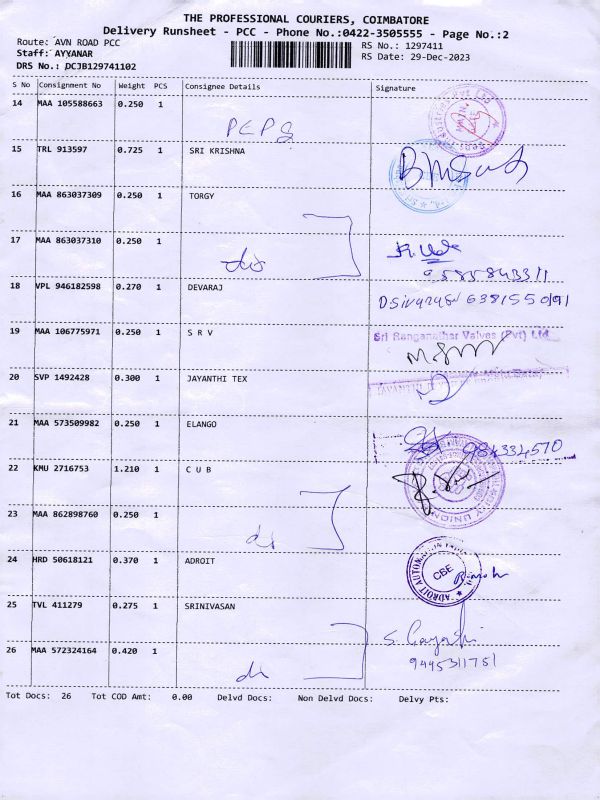 THE PROFESSIONAL COURIERS, COIMBATORE
Delivery Runsheet - PCC - Phone No.:0422-3505555 - Page No.:2
Route: AVN ROAD PCC
RS No.: 1297411
Staff: AYYANAR
RS Date: 29-Dec-2023
DRS No.: DCJB129741102
S No Consignment No Weight PCS Consignee Details Signature
14 MAA 105588663 0.250 1
PEPS
15 TRL 913597 0.725 1 SRI KRISHNA
16 MAA 863037309 0.250 1 TORGY
17 MAA 863037310 0.250 1
do
9585843311
18 VPL 946182598 0.270 1 DEVARAJ
6381550191
19 MAA 106775971 0.250 1 S R V
Sri Ranganathar Valves (Pvt) Ltd
20 SVP 1492428 0.300 1 JAYANTHI TEX
21 MAA 573509982 0.250 1 ELANGO
984334570
22 KMU 2716753 1.210 1 C U B
23 MAA 862898760 0.250 1
24 HRD 50618121 0.370 1 ADROIT
ADROIT AUTOMATION
CBE
25 TVL 411279 0.275 1 SRINIVASAN
S. Gayathri
26 MAA 572324164 0.420 1
9445311751
Tot Docs: 26 Tot COD Amt: 0.00 Delvd Docs: Non Delvd Docs: Delvy Pts: